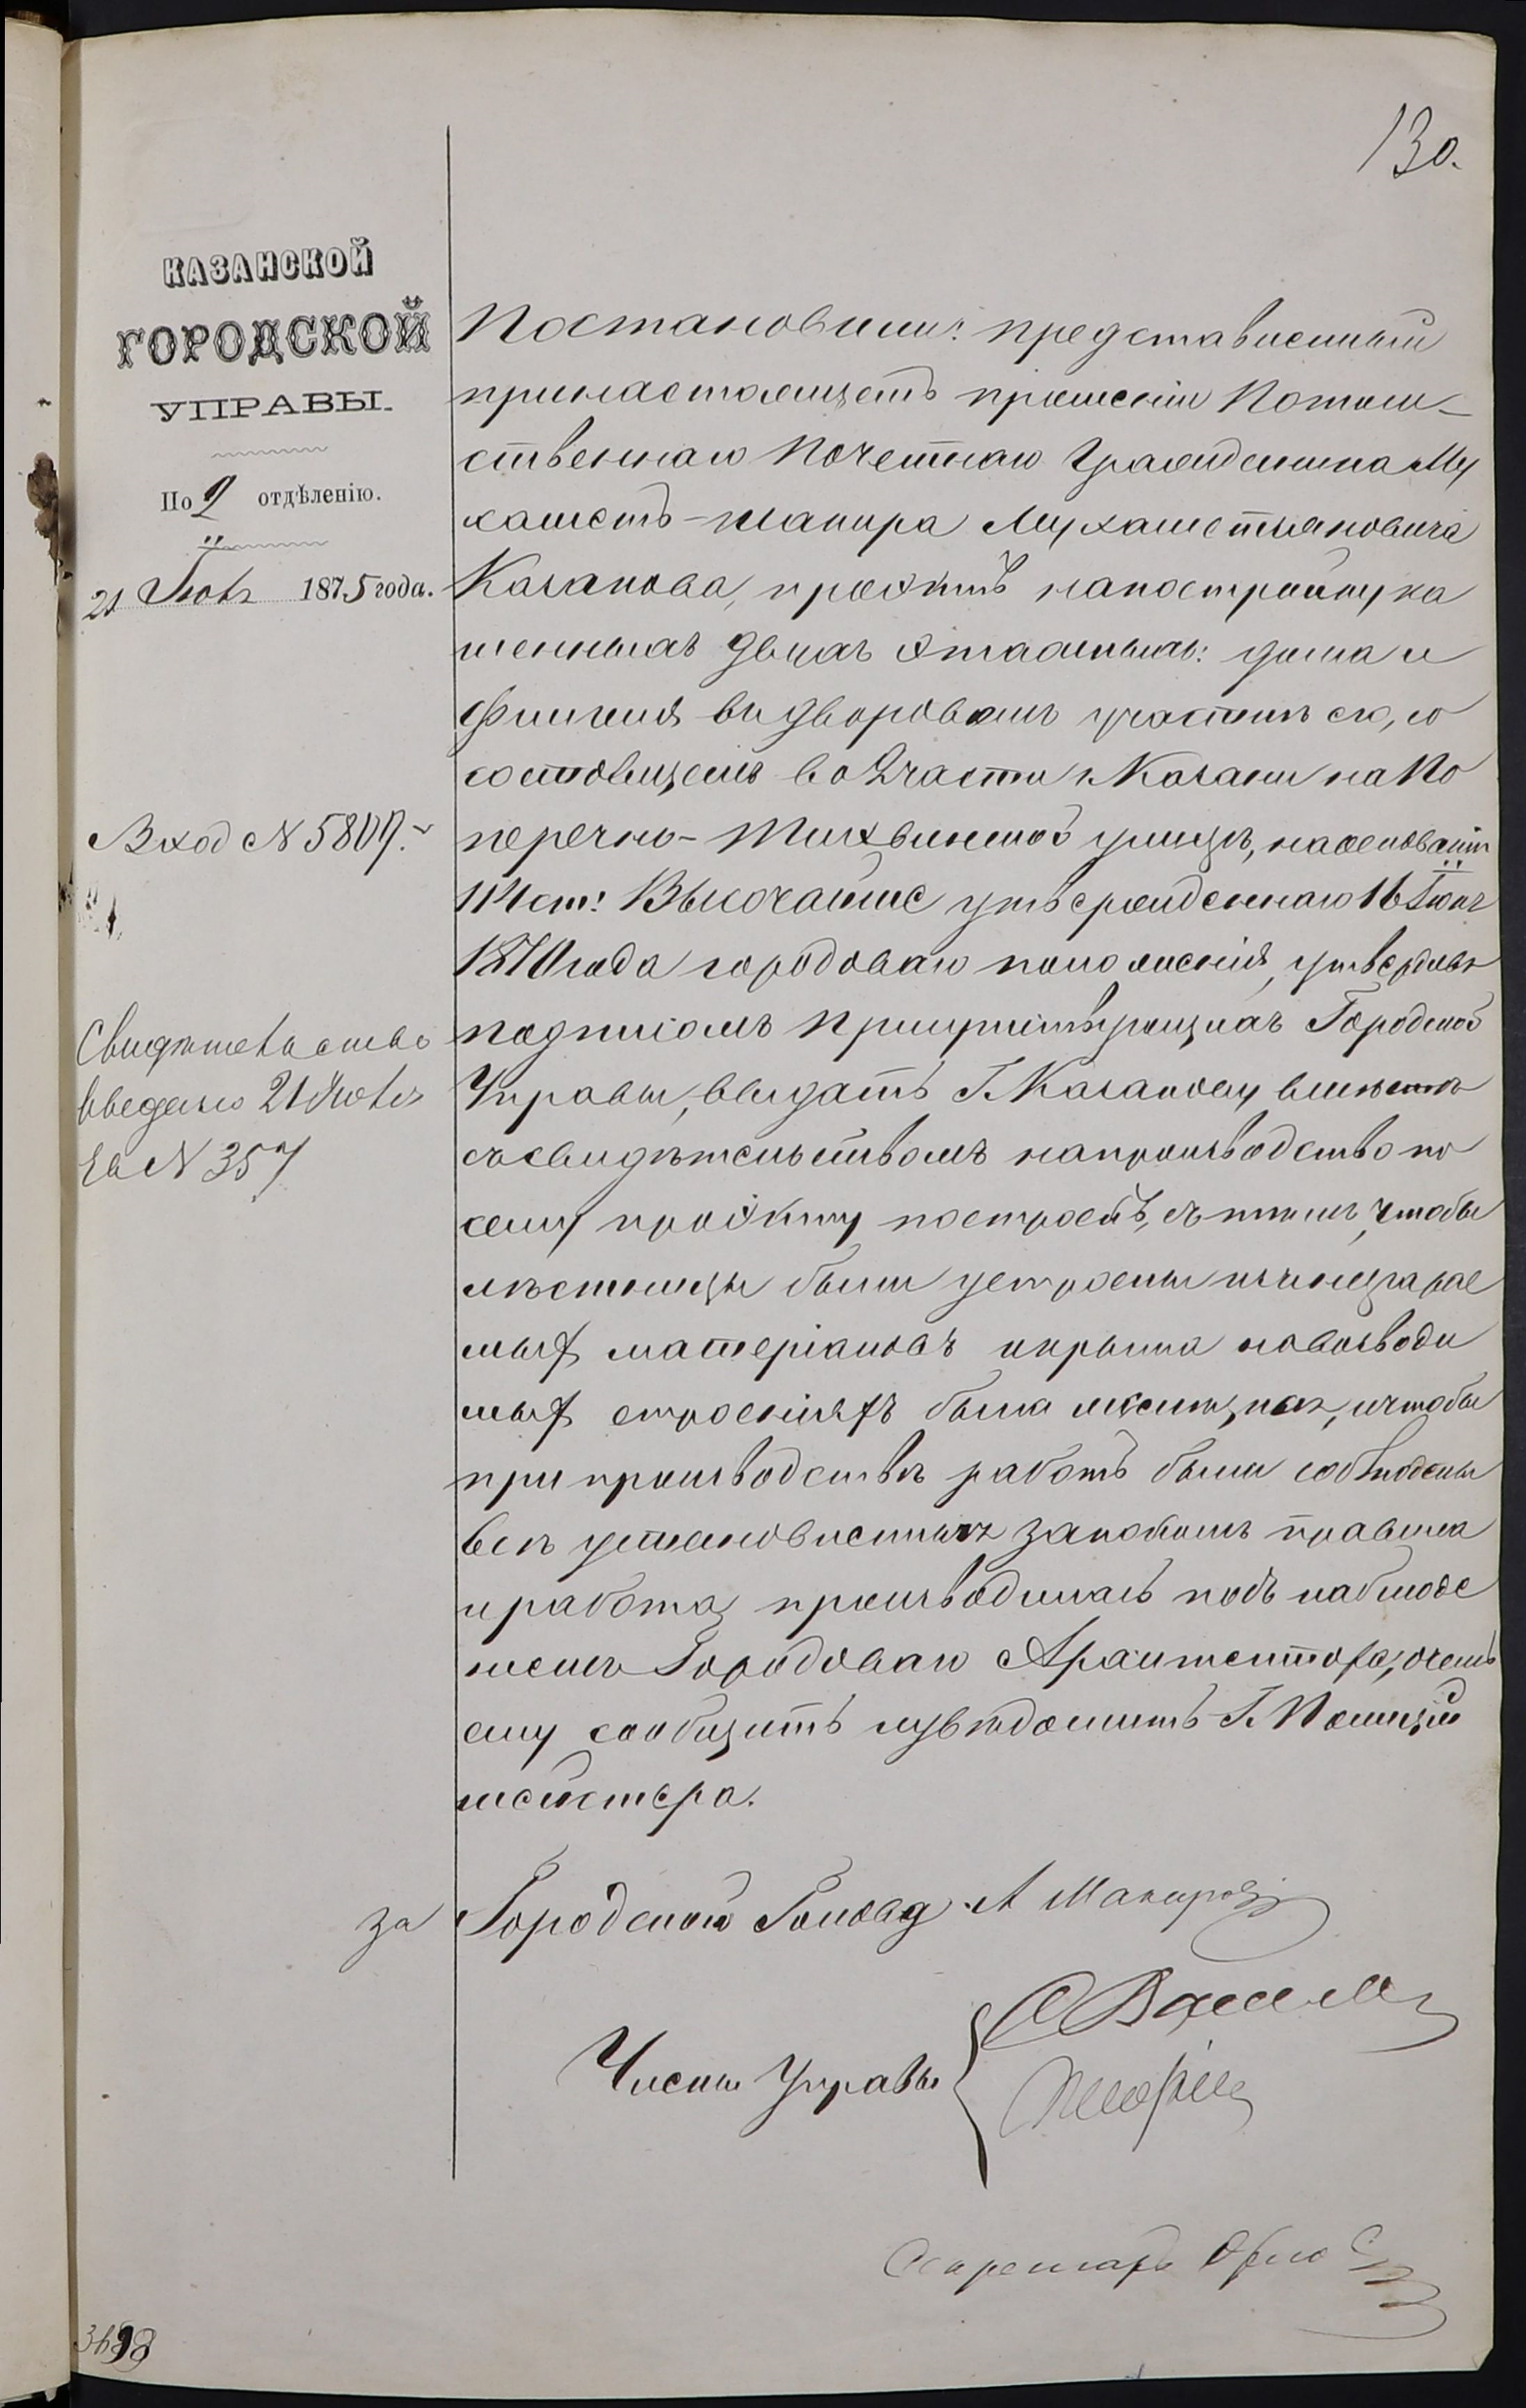 130.
КАЗАНСКОЙ
ГОРОДСКОЙ
УПРАВЫ.
По 2 отдѣленію.
21 Іюля 1875 года.
Вход № 5809.
Свидѣтельство
выдано 21 Июля
за № 357
Постановили: представленный
принастоящемъ прошеніи Потом-
ственнаго Почетнаго Гражданина Му
хаметъ-Шакира Мухаметзяновича
Казакова, проэктъ напостройку ка
менныхъ двухъ этажныхъ: дома и
флигеля въ дворовомъ участкѣ его, со
состоящемъ во 2 части г. Казани на По
перечно-Тихвинской улицѣ, наосновані
114 ст: Высочайше утвержденнаго 16 Іюня
1870 года городоваго положенія, утвердивъ
подписомъ Присутствующихъ Городской
Управы, выдать Г. Казакову вмѣстѣ
съ свидѣтельствомъ напроизводство по
сему проэкту построекъ, съ тѣмъ, чтобы
лѣстницы были устроены изъ несгарае
мыхъ матеріаловъ икрыша навозводи
мыхъ строеніяхъ была желѣзная, ичтобы
при производствѣ работъ были соблюдены
всѣ установленныя закономъ правила
и работа производилась подъ наблюде
ніемъ Городоваго Архитектора, очемъ
ему сообщить иувѣдомить Г. Полиціи
мейстера.
за Городской Голова А Макаров
Члены Управы
Секретарь